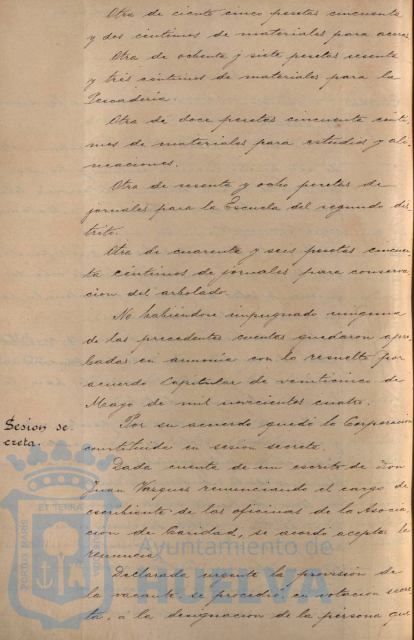 Otra de ciento cinco pesetas cincuenta
y dos centimos de materiales para aceras
Otra de ochenta y siete pesetas sesenta
y tres centimos de materiales para la
Pescaderia.
Otra de doce pesetas cincuenta centi
mos de materiales para estudios y ali
neaciones.
Otra de sesenta y ocho pesetas de
jornales para la Escuela del segundo dis
trito.
Otra de cuarenta y seis pesetas cincuen
ta centimos de jornales para conserva
cion del arbolado.
No habiendose impugnado ninguna
de las precedentes cuentas quedaron apro
badas en armonia con lo resuelto por
acuerdo Capitular de veinticinco de
Mayo de mil novecientos cuatro.
Sesion se
creta.
Por su acuerdo quedó la Corporacion
constituida en sesion secreta.
Dada cuenta de un escrito de Don
Juan Vazquez renunciando el cargo de
escribiente de las oficinas de la Asocia
cion de Caridad, se acordó aceptar la
renuncia.
Declarada urgente la provision de
la vacante se procedió en votacion secre
ta, á la designacion de la persona que
PORTUS MARIS ET TERRÆ
Ayuntamiento de
HUELVA